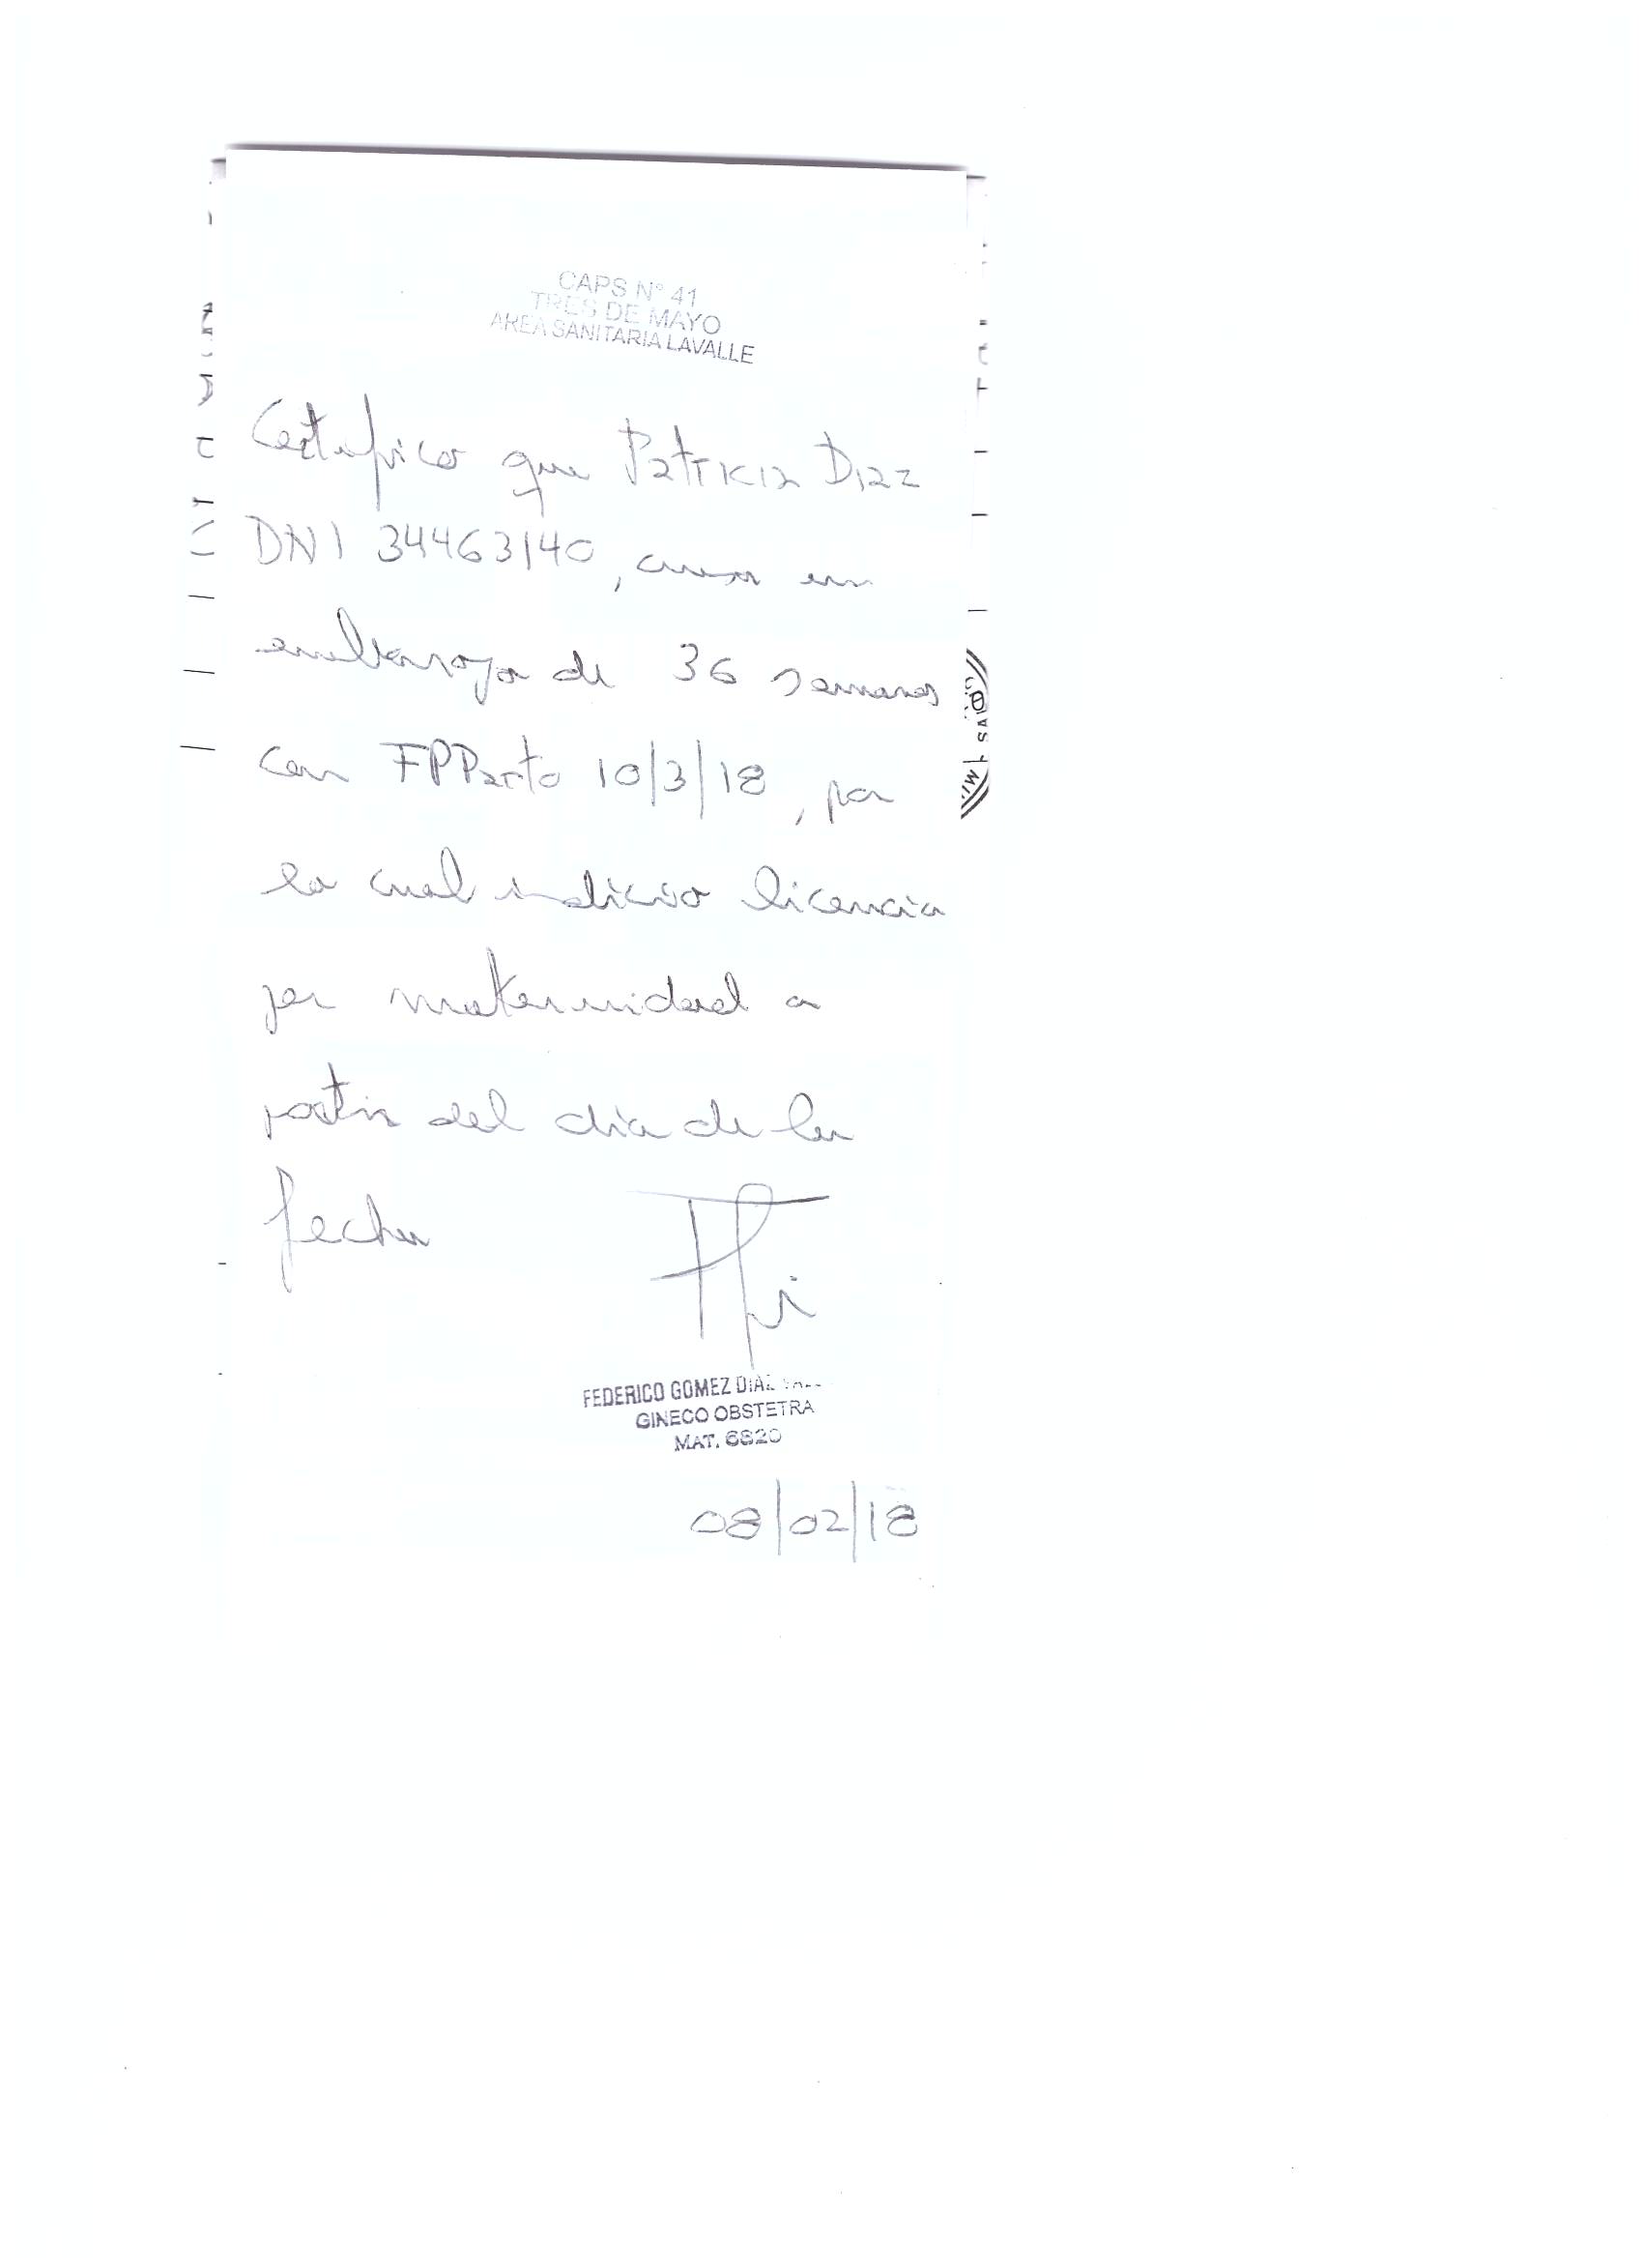 CAPS Nº 41
TRES DE MAYO
AREA SANITARIA LAVALLE
Certifico que Patricia Diaz
DNI 34463140, cursa un
embarazo de 36 semanas
con FPParto 10/3/18, por
lo cual indico licencia
por maternidad a
partir del día de la
fecha
FEDERICO GOMEZ DIAZ
GINECO OBSTETRA
MAT. 6820
08/02/18